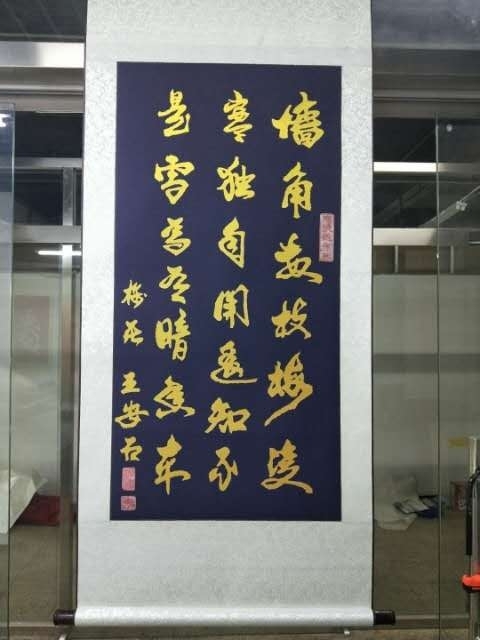 墙角数枝梅凌
寒独自開遥知不
是雪為有暗香来
梅花 王安石